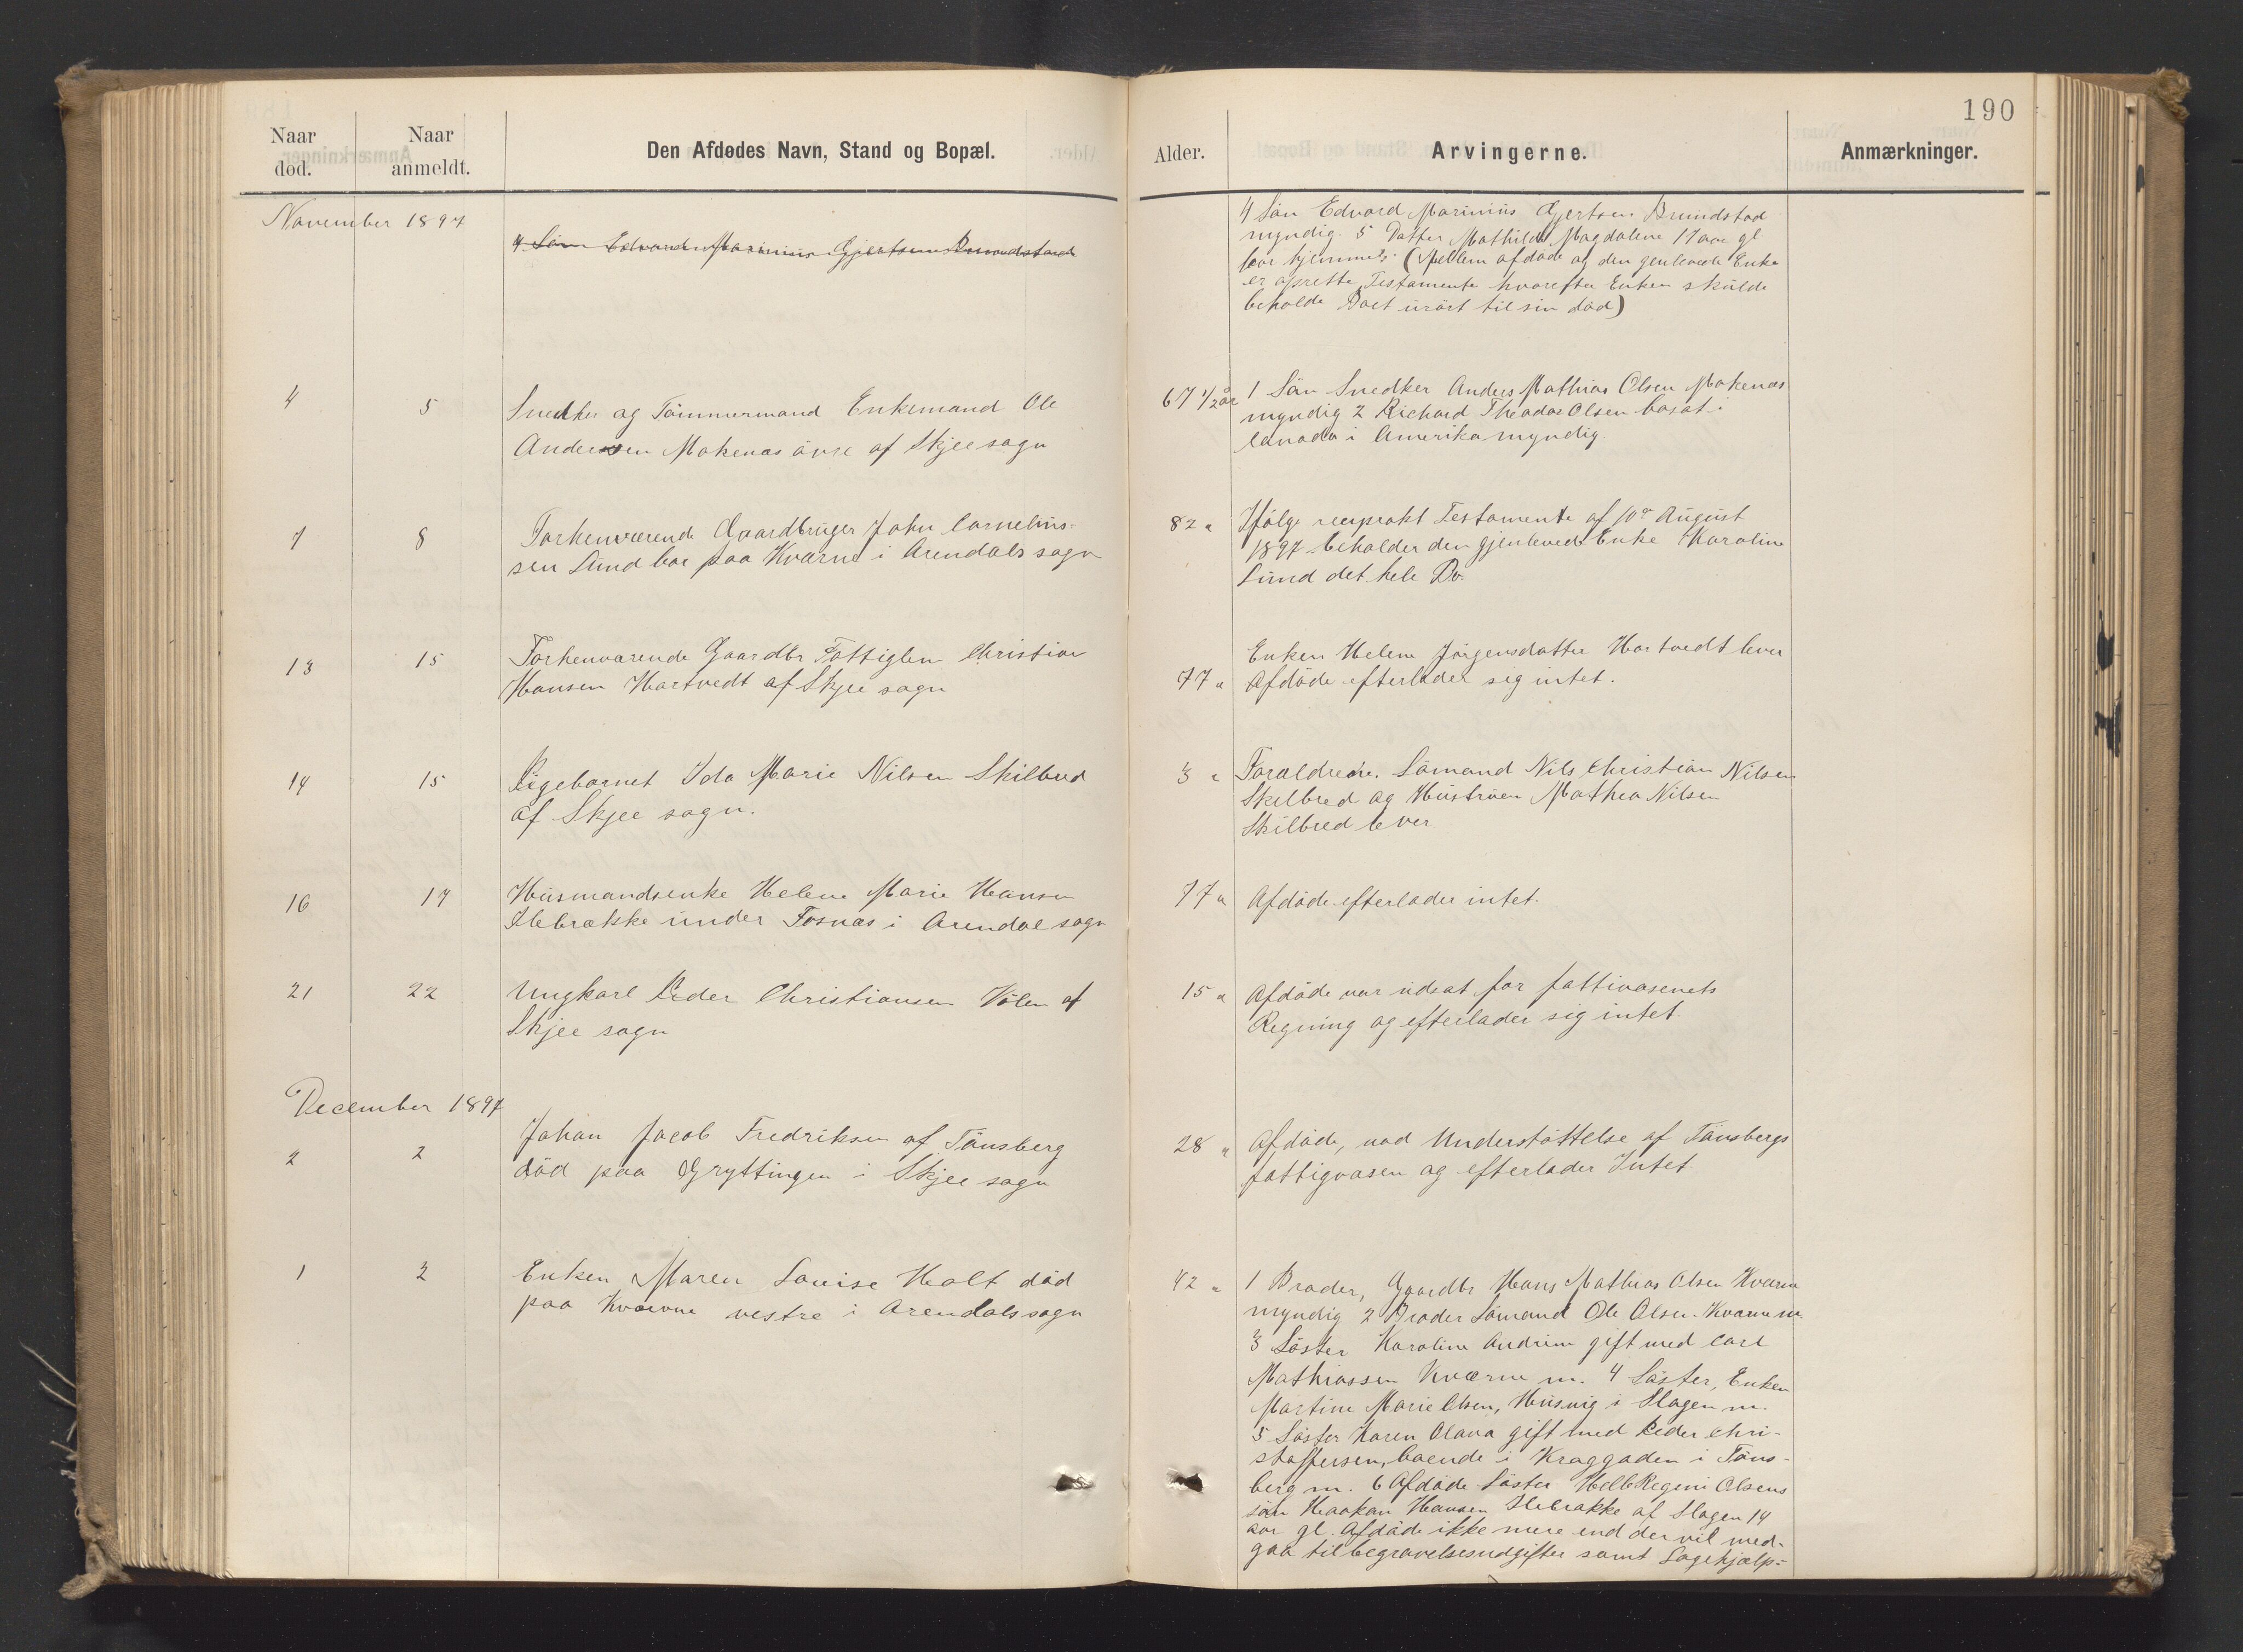 190
Naar død.
Naar anmeldt.
Den Afdødes Navn, Stand og Bopæl.
Alder.
Arvingerne.
Anmærkninger.
November 1897
4 Sön Edvard Marinius Gjertsen Brundstad
4 Sön Edvard Marinius Gjertsen Brundstad
myndig. 5 Datter Mathilde Magdalene 17 aar gl
hjemme. (Mellem afdöde og den genlevede Enke
er oprette Testamente hvorefter Enken skulde
beholde Boet urört til sin död)
4
5
Snedker og Tömmermand Enkemand Ole
Andersen Mokenæs övre af Skjee sogn
67 1/2 år
1 Sön Snedker Anders Mathias Olsen Mokenæs
myndig 2 Richard Theodor Olsen bosat i
Canada i Amerika myndig.
7
8
Forhenværende Gaardbruger John Cornelius-
sen Lund boe paa Kværne i Arendals sogn
82 "
Ifölge reciprokt Testamente af 10de August
1897 beholder den gjenlevede Enke Karoline
Lund det hele Bo.
13
15
Forhenværende Gaardbr Fattiglem Christian
Hansen Hortvedt af Skjee sogn
77 "
Enken Helene Jörgensdatter Hortvedt lever
Afdöde efterlader sig intet.
14
15
Pigebarnet Ida Marie Nilsen Skilbred
af Skjee sogn.
3 "
Forældrene. Sömand Nils Christian Nilsen
Skilbred og Hustruen Mathea Nilsen
Skilbred lever
16
17
Husmandsenke Helene Marie Hansen
Ilebrække under Fosnæs i Arendal sogn
77 "
Afdöde efterlader intet.
21
22
Ungkarl Peder Christiansen Völen af
Skjee sogn
15 "
Afdöde var udsat for fattivæsenets
Regning og efterlader sig intet.
December 1897
2
2
Johan Jacob Fredriksen af Tönsberg
död paa Gryttingen i Skjee sogn
28 "
Afdöde, nöd Understöttelse af Tönsbergs
fattigvæsen og efterlader Intet.
1
2
Enken Maren Louise Holt död
paa Kværne vestre i Arendals sogn
42 "
1 Broder, Gaardbr Hans Mathias Olsen Kværne
myndig 2 Broder Sömand Ole Olsen Kværne m.
3 Söster Karoline Andrine gift med Carl
Mathiassen Kværne m. 4 Söster, Enken
Martine Marie Olsen, Husvig i Slagen m.
5 Söster Karen Olava gift med Peder Chri-
stoffersen, boende i Kraggaden i Töns-
berg m. 6 Afdöde Söster Regine Olsens
sön Haakon Hansen Ilebrække af Slagen 14
aar gl. Afdöde ikke mere end der vil med-
gaa til begravelsesudgifter samt Lægehjælp=